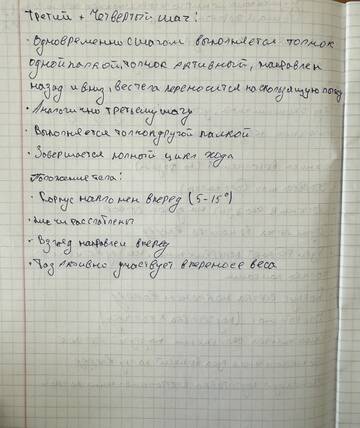 Третий + Четвертый шаг:
· Одновременно с шагом выполняется толчок
одной палкой, толчок активный, направлен
назад и вниз, вес тела переносится на скользящую ногу
· Аналогично третьему шагу
· Выполняется толчок другой палкой
· Завершается полный цикл хода
Положение тела:
· Корпус наклонен вперед (5-15°)
· плечи расслаблены
· Взгляд направлен вперед
· Таз активно участвует в переносе веса